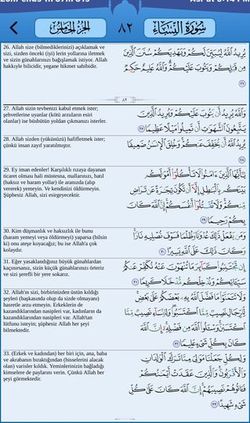 الجزء الخامس ٨٢ سورة النساء
26. Allah size (bilmediklerinizi) açıklamak ve
sizi, sizden önceki (iyi) lerin yollarına iletmek
ve sizin günahlarınızı bağışlamak istiyor. Allah
hakkıyle bilicidir, yegane hikmet sahibidir.
يُرِيدُ ٱللَّهُ لِيُبَيِّنَ لَكُمْ وَيَهْدِيَكُمْ سُنَنَ ٱلَّذِينَ
مِن قَبْلِكُمْ وَيَتُوبَ عَلَيْكُمْ وَٱللَّهُ عَلِيمٌ حَكِيمٌ
٢٦
٨٣
27. Allah sizin tevbenizi kabul etmek ister;
şehvetlerine uyanlar (kötü arzuların esiri
olanlar) ise büsbütün yoldan çıkmanızı isterler.
وَٱللَّهُ يُرِيدُ أَن يَتُوبَ عَلَيْكُمْ وَيُرِيدُ ٱلَّذِينَ
يَتَّبِعُونَ ٱلشَّهَوَٰتِ أَن تَمِيلُوا۟ مَيْلًا عَظِيمًا ٢٧
28. Allah sizden (yükünüzü) hafifletmek ister;
çünkü insan zayıf yaratılmıştır.
يُرِيدُ ٱللَّهُ أَن يُخَفِّفَ عَنكُمْ وَخُلِقَ ٱلْإِنسَٰنُ ضَعِيفًا
٢٨
29. Ey iman edenler! Karşılıklı rızaya dayanan
ticaret olması hali müstesna, mallarınızı, batıl
(haksız ve haram yollar) ile aranızda (alıp
vererek) yemeyin. Ve kendinizi öldürmeyin.
Şüphesiz Allah, sizi esirgeyecektir.
يَٰٓأَيُّهَا ٱلَّذِينَ ءَامَنُوا۟ لَا تَأْكُلُوٓا۟ أَمْوَٰلَكُم
بَيْنَكُم بِٱلْبَٰطِلِ إِلَّآ أَن تَكُونَ تِجَٰرَةً عَن تَرَاضٍ
مِّنكُمْ وَلَا تَقْتُلُوٓا۟ أَنفُسَكُمْ إِنَّ ٱللَّهَ كَانَ بِكُمْ
رَحِيمًا ٢٩
30. Kim düşmanlık ve haksızlık ile bunu
(haram yemeyi veya öldürmeyi) yaparsa (bilsin
ki) onu ateşe koyacağız; bu ise Allah'a çok
kolaydır.
وَمَن يَفْعَلْ ذَٰلِكَ عُدْوَٰنًا وَظُلْمًا فَسَوْفَ نُصْلِيهِ نَارًا
وَكَانَ ذَٰلِكَ عَلَى ٱللَّهِ يَسِيرًا ٣٠
31. Eğer yasaklandığınız büyük günahlardan
kaçınırsanız, sizin küçük günahlarınızı örteriz
ve sizi şerefli bir yere sokarız.
إِن تَجْتَنِبُوا۟ كَبَآئِرَ مَا تُنْهَوْنَ عَنْهُ نُكَفِّرْ عَنكُمْ
سَيِّـَٔاتِكُمْ وَنُدْخِلْكُم مُّدْخَلًا كَرِيمًا ٣١
32. Allah'ın sizi, birbirinizden üstün kıldığı
şeyleri (başkasında olup da sizde olmayanı)
hasretle arzu etmeyin. Erkeklerin de
kazandıklarından nasipleri var, kadınların da
kazandıklarından nasipleri var. Allah'tan
lütfunu isteyin; şüphesiz Allah her şeyi
bilmektedir.
وَلَا تَتَمَنَّوْا۟ مَا فَضَّلَ ٱللَّهُ بِهِۦ بَعْضَكُمْ عَلَىٰ بَعْضٍ
لِّلرِّجَالِ نَصِيبٌ مِّمَّا ٱكْتَسَبُوا۟ وَلِلنِّسَآءِ نَصِيبٌ مِّمَّا
ٱكْتَسَبْنَ وَسْـَٔلُوا۟ ٱللَّهَ مِن فَضْلِهِۦٓ إِنَّ ٱللَّهَ كَانَ
بِكُلِّ شَىْءٍ عَلِيمًا ٣٢
33. (Erkek ve kadından) her biri için, ana, baba
ve akrabanın bıraktığından (hisselerini alacak
olan) varisler kıldık. Yeminlerinizin bağladığı
kimselere de paylarını verin. Çünkü Allah her
şeyi görmektedir.
وَلِكُلٍّ جَعَلْنَا مَوَٰلِىَ مِمَّا تَرَكَ ٱلْوَٰلِدَانِ
وَٱلْأَقْرَبُونَ وَٱلَّذِينَ عَقَدَتْ أَيْمَٰنُكُمْ
فَـَٔاتُوهُمْ نَصِيبَهُمْ إِنَّ ٱللَّهَ كَانَ عَلَىٰ كُلِّ
شَىْءٍ شَهِيدًا ٣٣